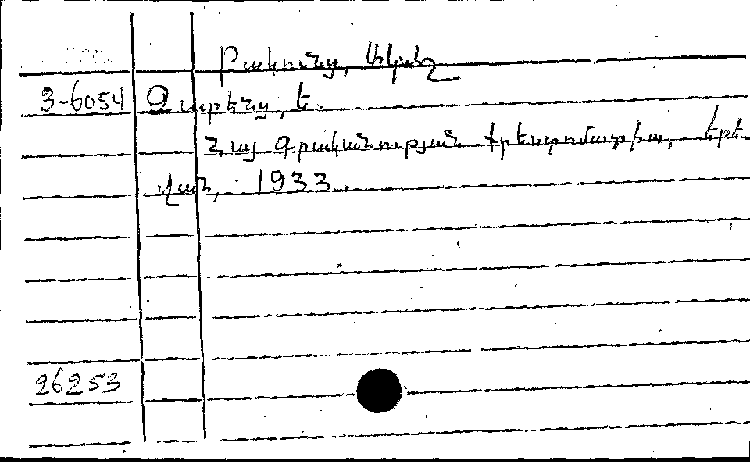 Բակունց, Ակսել
3-6054 Չարենց, Ե.
Հայ գրականության քրեստոմատիա, Երե
վան, 1933.
26253